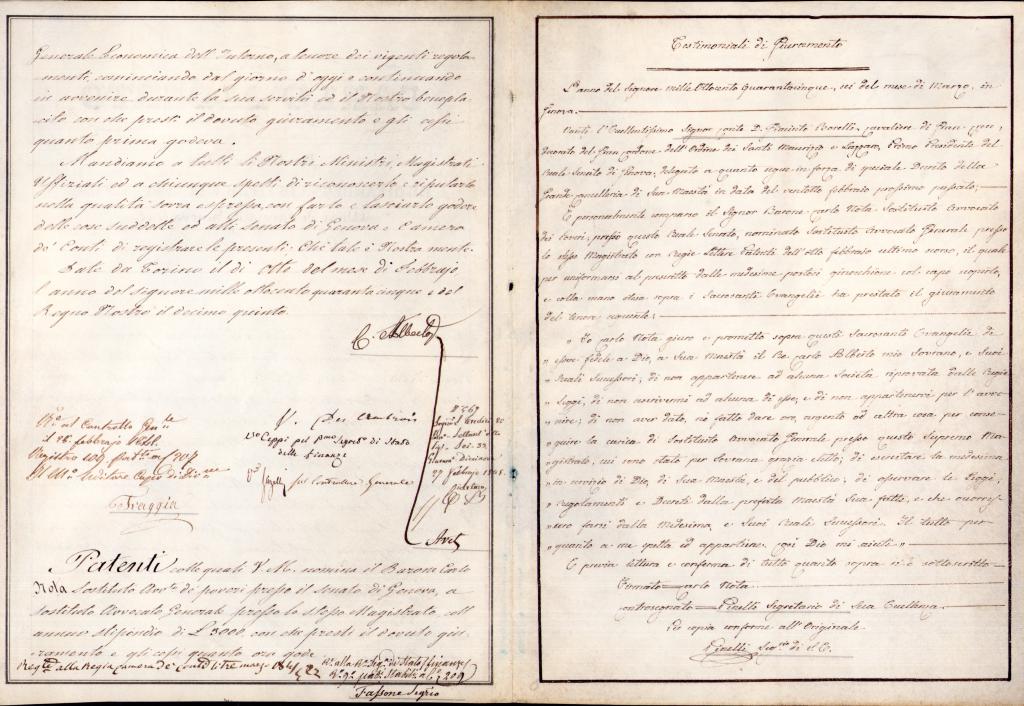 Generale Economica dell'Interno, a tenore dei vigenti regola-
menti, cominciando dal giorno d'oggi e continuando
in avvenire durante la sua servitù ed il Nostro benepla-
cito con che presti il dovuto giuramento e gli cessi
quanto prima godeva.
Mandiamo a tutti li Nostri Ministri, Magistrati
Uffiziali ed a chiunque spetti di riconoscerlo e riputarlo
nella qualità sovra espressa, con farlo e lasciarlo godere
delle cose suddette ed alli Senato di Genova e Camera
de' Conti di registrare le presenti. Chè tale è Nostra mente.
Date da Torino il dì otto del mese di Febbrajo
l'anno del Signore mille ottocento quaranta cinque e del
Regno Nostro il decimo quinto.
C. Alberto
al Controllo Gen.le
il 26 febbrajo
Registro
Fraggia
V.
V.o Ceppi pel Primo Segret.o di Stato
delle Finanze
pel Controllore Generale
N. 369
27 Febbrajo 1845.
Avet
Patenti colle quali V. M. nomina il Barone Carlo
Nota Sostituto Avv.to di poveri presso il Senato di Genova, a
sostituto Avvocato Generale presso lo stesso Magistrato coll'
annuo stipendio di L. 3000, con che presti il dovuto giu-
ramento e gli cessi quanto ora gode.
Reg.te alla Regia Camera de' Conti li tre marzo
Fassone Segrio
Testimoniali di Giuramento
L'anno del Signore mille Ottocento Quarantacinque, sei del mese di Marzo, in
Genova.
Avanti l'Eccellentissimo Signor Conte D. Giacinto Borelli, Cavaliere di Gran Croce,
decorato del Gran Cordone dell'Ordine dei Santi Maurizio e Lazzaro, Primo Presidente del
Reale Senato di Genova, delegato a quanto segue in forza di speciale Decreto della
Grande Cancelleria di Sua Maestà in data del ventotto febbraio prossimo passato;
È personalmente comparso il Signor Barone Carlo Nota Sostituto Avvocato
dei Poveri presso questo Reale Senato, nominato Sostituto Avvocato Generale presso
lo stesso Magistrato con Regie Lettere Patenti dell'otto febbraio ultimo scorso, il quale
per uniformarsi al prescritto dalle medesime postosi ginocchione col capo scoperto,
e colla mano stesa sopra i Sacrosanti Evangelii ha prestato il giuramento
del tenore seguente:
" Io Carlo Nota giuro e prometto sopra questi Sacrosanti Evangelii di
" essere fedele a Dio, a Sua Maestà il Re Carlo Alberto mio Sovrano, e Suoi
" Reali Successori; di non appartenere ad alcuna Società riprovata dalle Regie
" Leggi, di non ascrivermi ad alcuna di esse, e di non appartenervi per l'avve-
" nire; di non aver dato, nè fatto dare oro, argento od altra cosa per conse-
" guire la carica di Sostituto Avvocato Generale presso questo Supremo Ma-
" gistrato, cui sono stato per Sovrana grazia eletto; di esercitare la medesima
" in servizio di Dio, di Sua Maestà, e del pubblico; di osservare le Leggi,
" Regolamenti e Decreti dalla prefata Maestà Sua fatti, e che occorres-
" sero farsi dalla medesima, e Suoi Reali Successori. Il tutto per
" quanto a me spetta ed appartiene. Così Dio mi aiuti "
E previa lettura e conferma di tutto quanto sopra si è sottoscritto
Firmato Carlo Nota
Contrassegnato Pinelli Segretario di Sua Eccellenza.
Per copia conforme all'Originale
Pinelli Seg.rio di S. E.